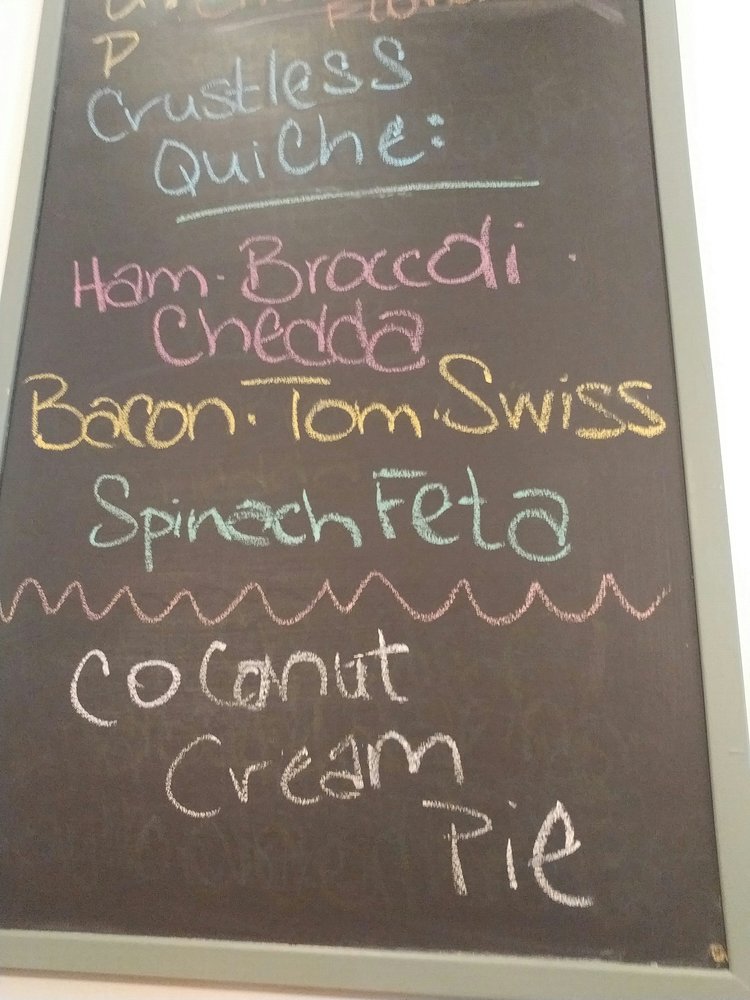 P
Crustless
Quiche:
Ham. Broccoli.
Chedda
Bacon. Tom. Swiss
Spinach Feta
Coconut
Cream
Pie